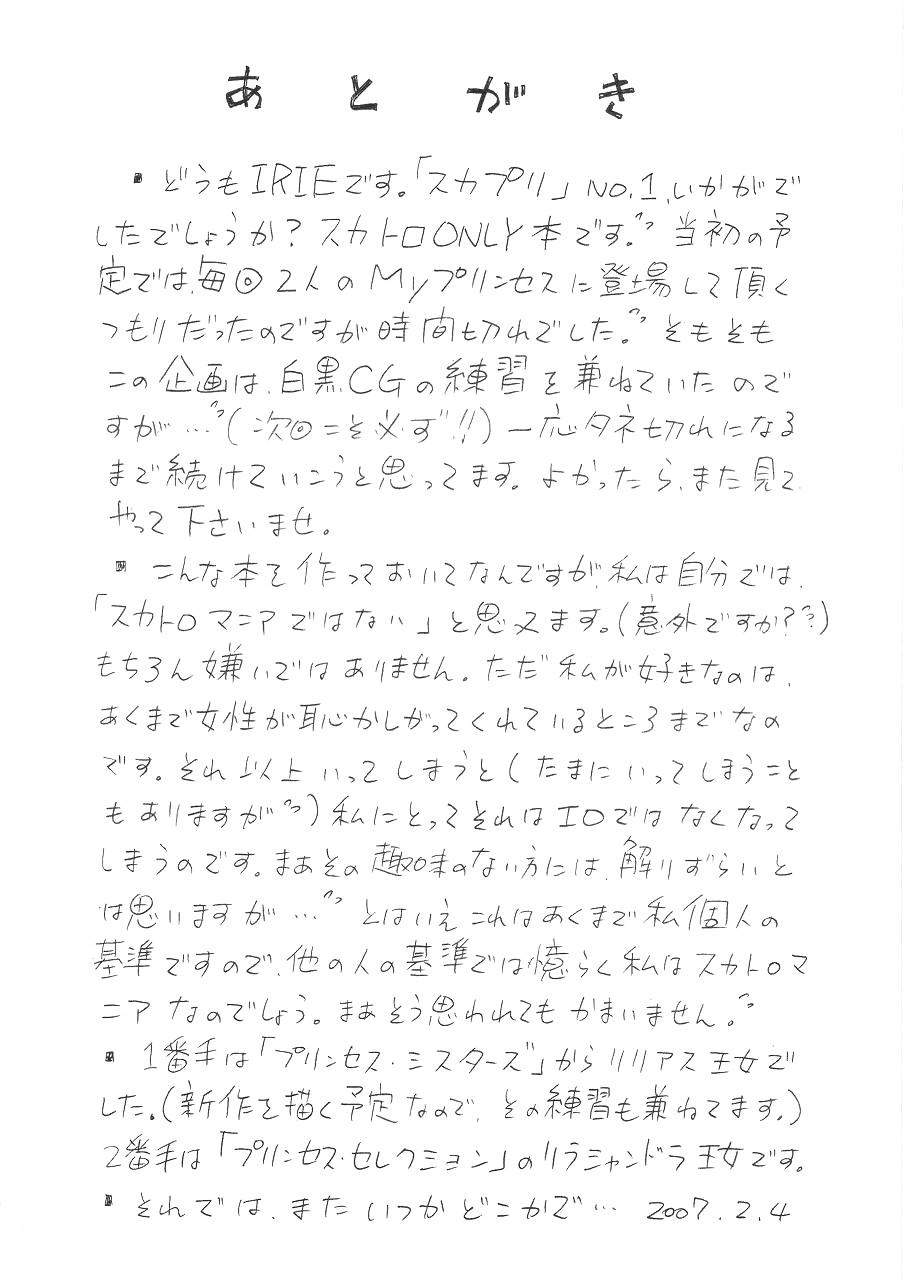 あとがき
・どうもIRIEです。「スカプリ」NO.1、いかがで
したでしょうか?スカトロONLY本です。当初の予
定では、毎回2人のMyプリンセスに登場して頂く
つもりだったのですが時間切れでした。そもそも
この企画は、白黒CGの練習を兼ねていたので
すが…(次回こそ必ず!!)一応タネ切れになる
まで続けていこうと思ってます。よかったら、また見て
やって下さいませ。
・こんな本を作っておいてなんですが、私は自分では、
「スカトロマニアではない」と思えます。(意外ですか??)
もちろん嫌いではありません。ただ私が好きなのは、
あくまで女性が恥かしがってくれているところまでなの
です。それ以上いってしまうと(たまにいってしまうこと
もありますが)私にとってそれはエロではなくなって
しまうのです。まあその趣味のない方には、解りずらいと
は思いますが…とはいえこれはあくまで私個人の
基準ですので、他の人の基準では憶らく私はスカトロマ
ニアなのでしょう。まあそう思われてもかまいません。
・1番手は「プリンセス・ミスターズ」からリリアス王女で
した。(新作を描く予定なので、その練習も兼ねてます。)
2番手は「プリンセス・セレクション」のリラシャンドラ王女です。
・それでは、またいつかどこかで… 2007.2.4